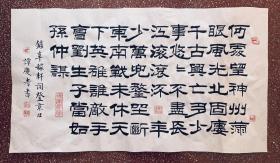 何處望神州滿
眼風光北固樓
千古興亡多少
事悠悠不盡長
江滾滾流年
少萬兜鍪坐斷
東南戰未休天
下英雄誰敵手
曹劉生子當如
孫仲謀
錄辛稼軒詞登京口
書